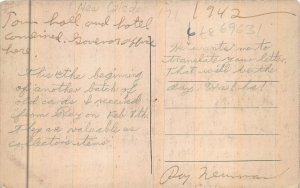 New Caledo
Town hall and hotel
combined. Governor's office
here.
This is the beginning
of another batch of
old cards I received
from Roy on Feb 8th.
They are valuable as
collector's items.
1942
He wants me to
translate your letter.
That will be the
day. Wow! ha!
Roy Newman